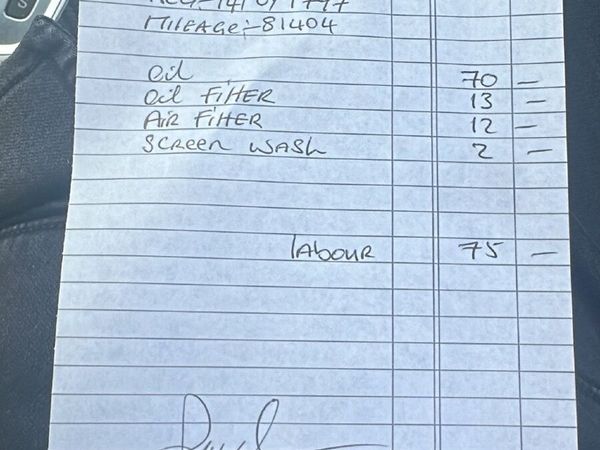 MILEAGE:-81404
Oil 70 —
Oil FilTER 13 —
AIR FilTER 12 —
SCREEN WASH 2 —
lABOUR 75 —